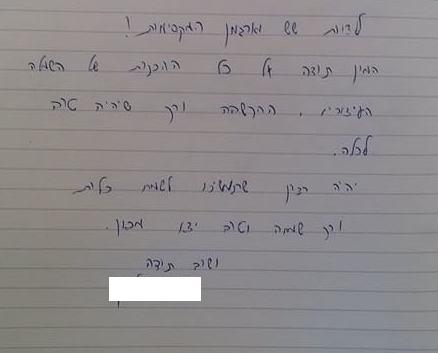 לדיות שש וארגמן המקסימות!
המון תודה על כל ההכנות של השמלה
העיצוריו, ההקשבה ורק שיהיה טוב
לכלה.
יהיה רצון שתמשיכו לשמח כלות
ורק שמחה וטוב יצאו מכאן.
ושוב תודה